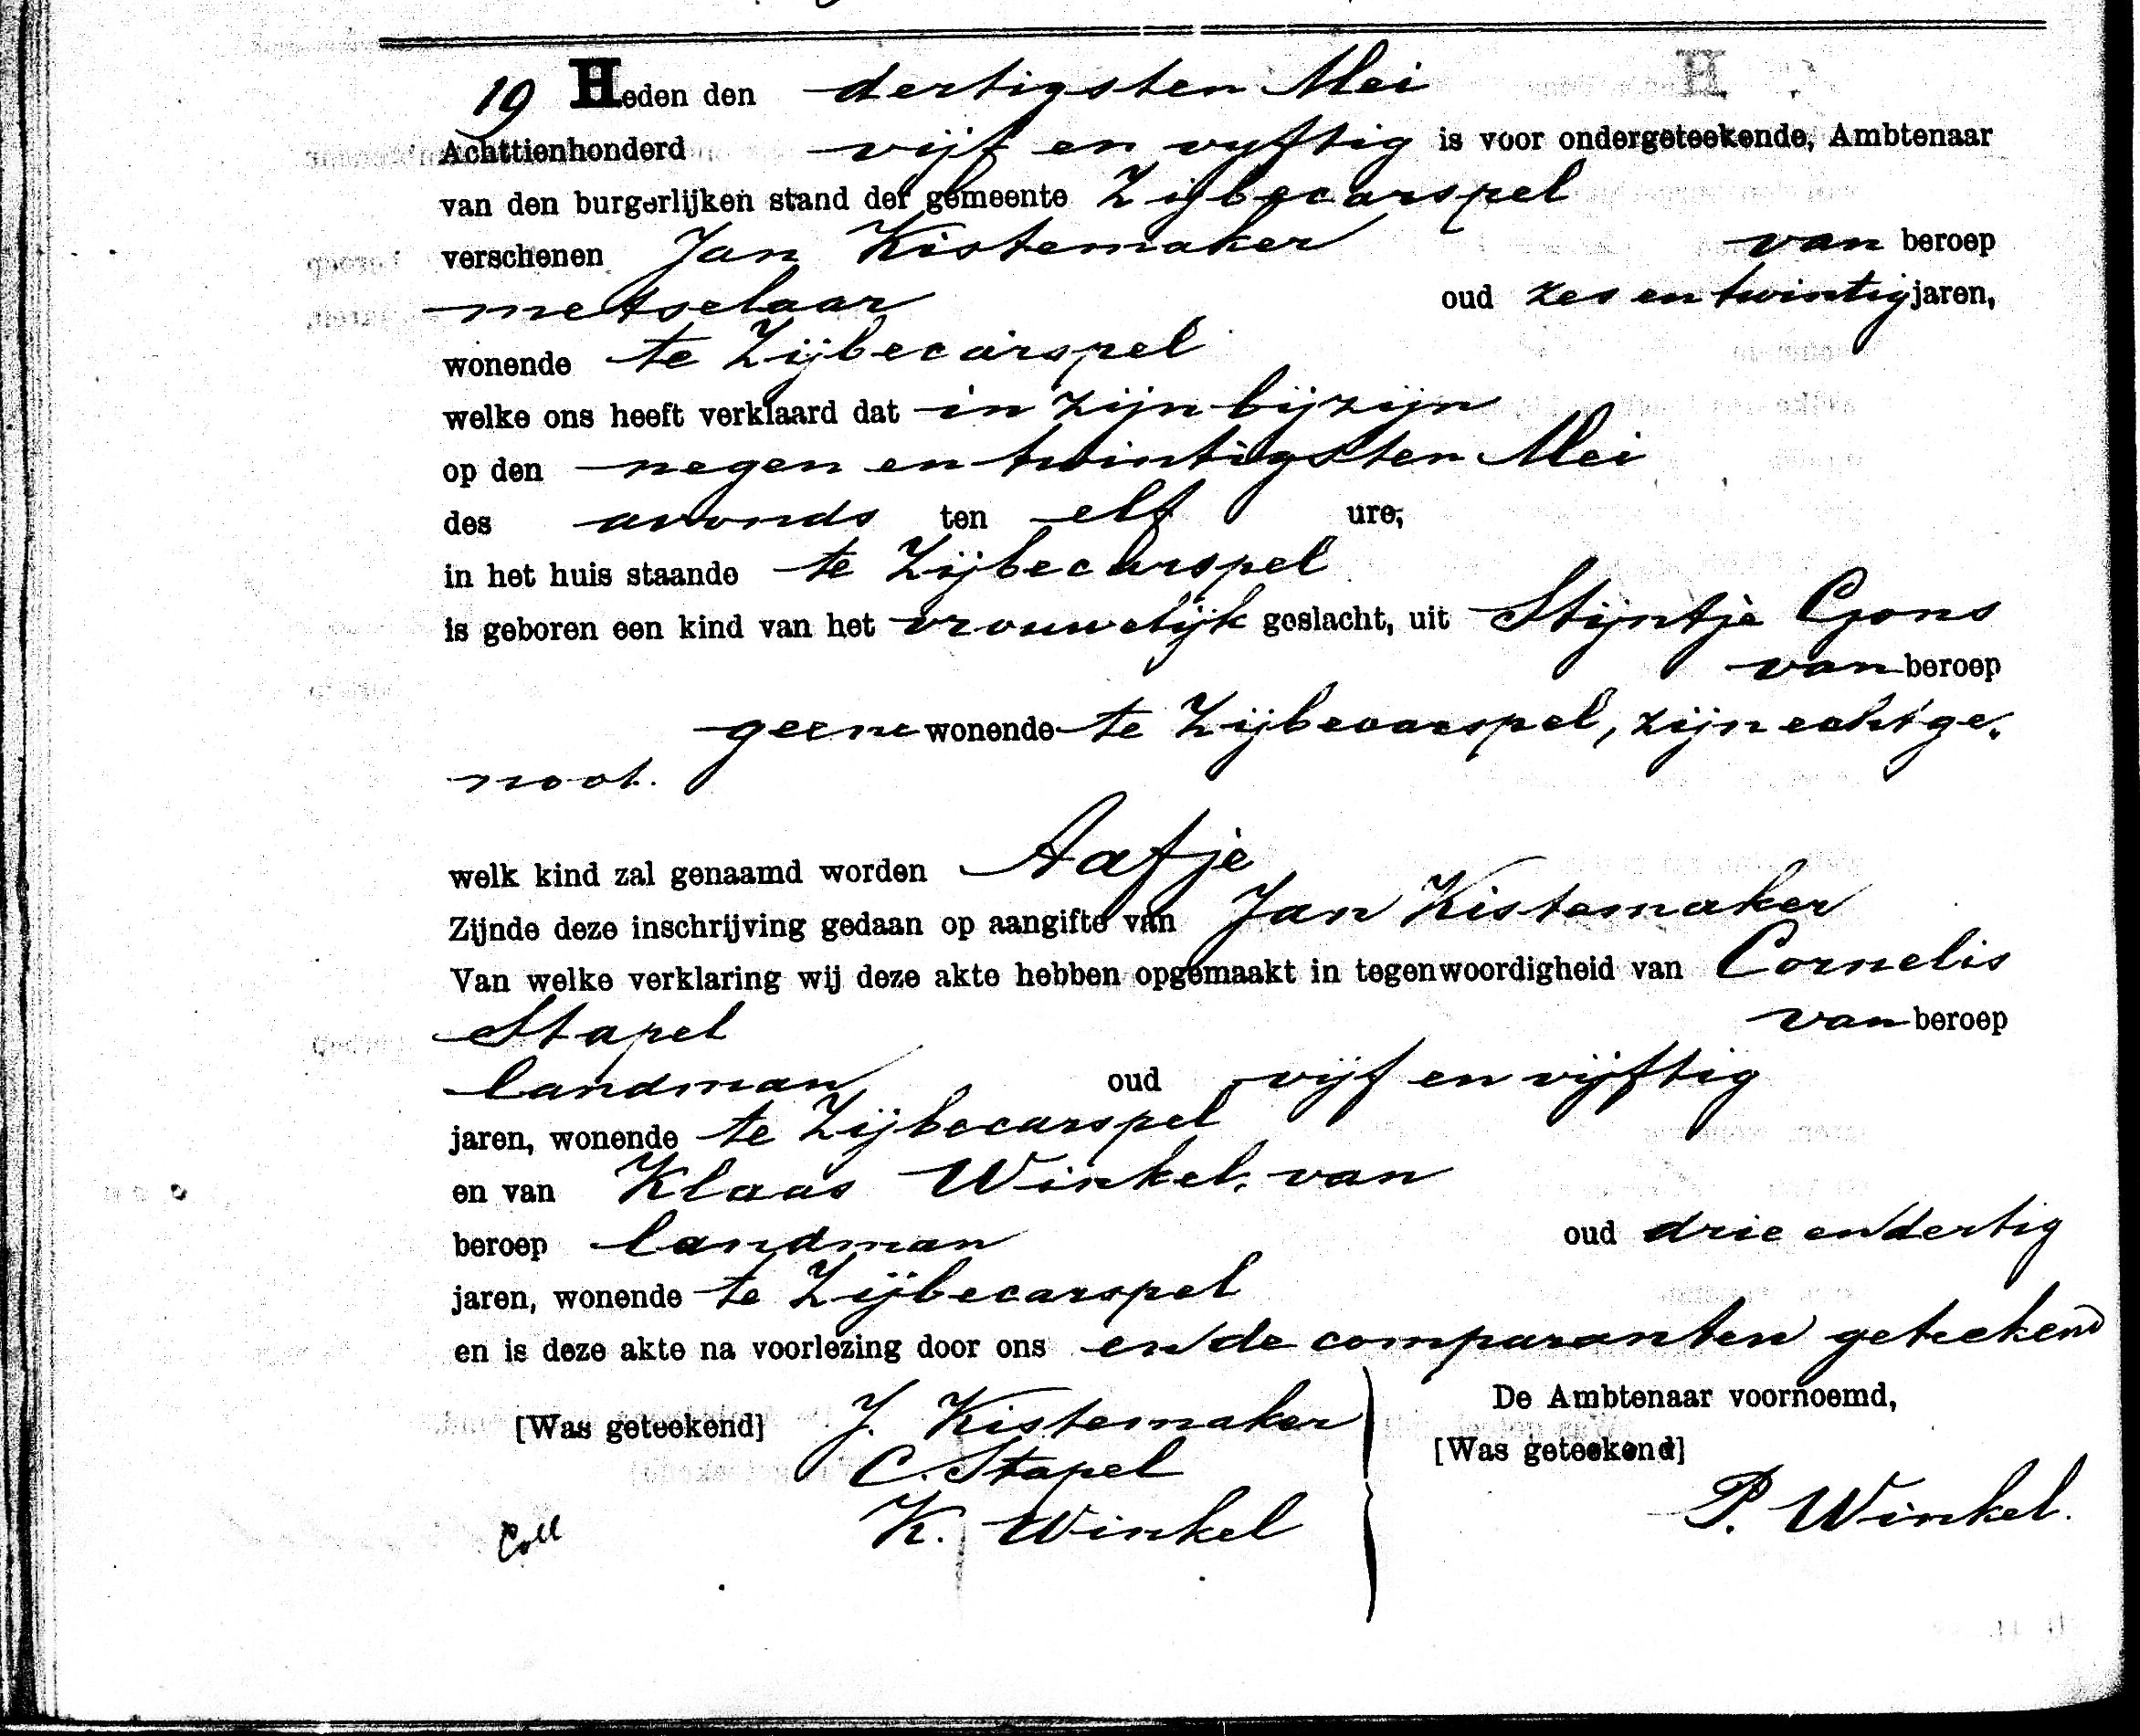 19 Heden den dertigsten Mei
Achttienhonderd vijf en vyftig is voor ondergeteekende, Ambtenaar
van den burgerlijken stand der gemeente Zijbecarspel
verschenen Jan Kistemaker van beroep
metselaar oud zes en twintig jaren,
wonende te Zijbecarspel
welke ons heeft verklaard dat in zijn bijzijn
op den negen en twintigsten Mei
des avonds ten elf ure,
in het huis staande te Zijbecarspel
is geboren een kind van het vrouwelijk geslacht, uit Stijntje Gons
van beroep
geene wonende te Zijbecarspel, zijn echtge„
noot.
welk kind zal genaamd worden Aafje
Zijnde deze inschrijving gedaan op aangifte van Jan Kistemaker
Van welke verklaring wij deze akte hebben opgemaakt in tegenwoordigheid van Cornelis
Stapel van beroep
landman oud vijf en vijftig
jaren, wonende te Zijbecarspel
en van Klaas Winkel, van
beroep landman oud drie en dertig
jaren, wonende te Zijbecarspel
en is deze akte na voorlezing door ons en de comparanten geteekend
De Ambtenaar voornoemd,
[Was geteekend] J. Kistemaker
[Was geteekend]
C. Stapel
K. Winkel P. Winkel.
Coll